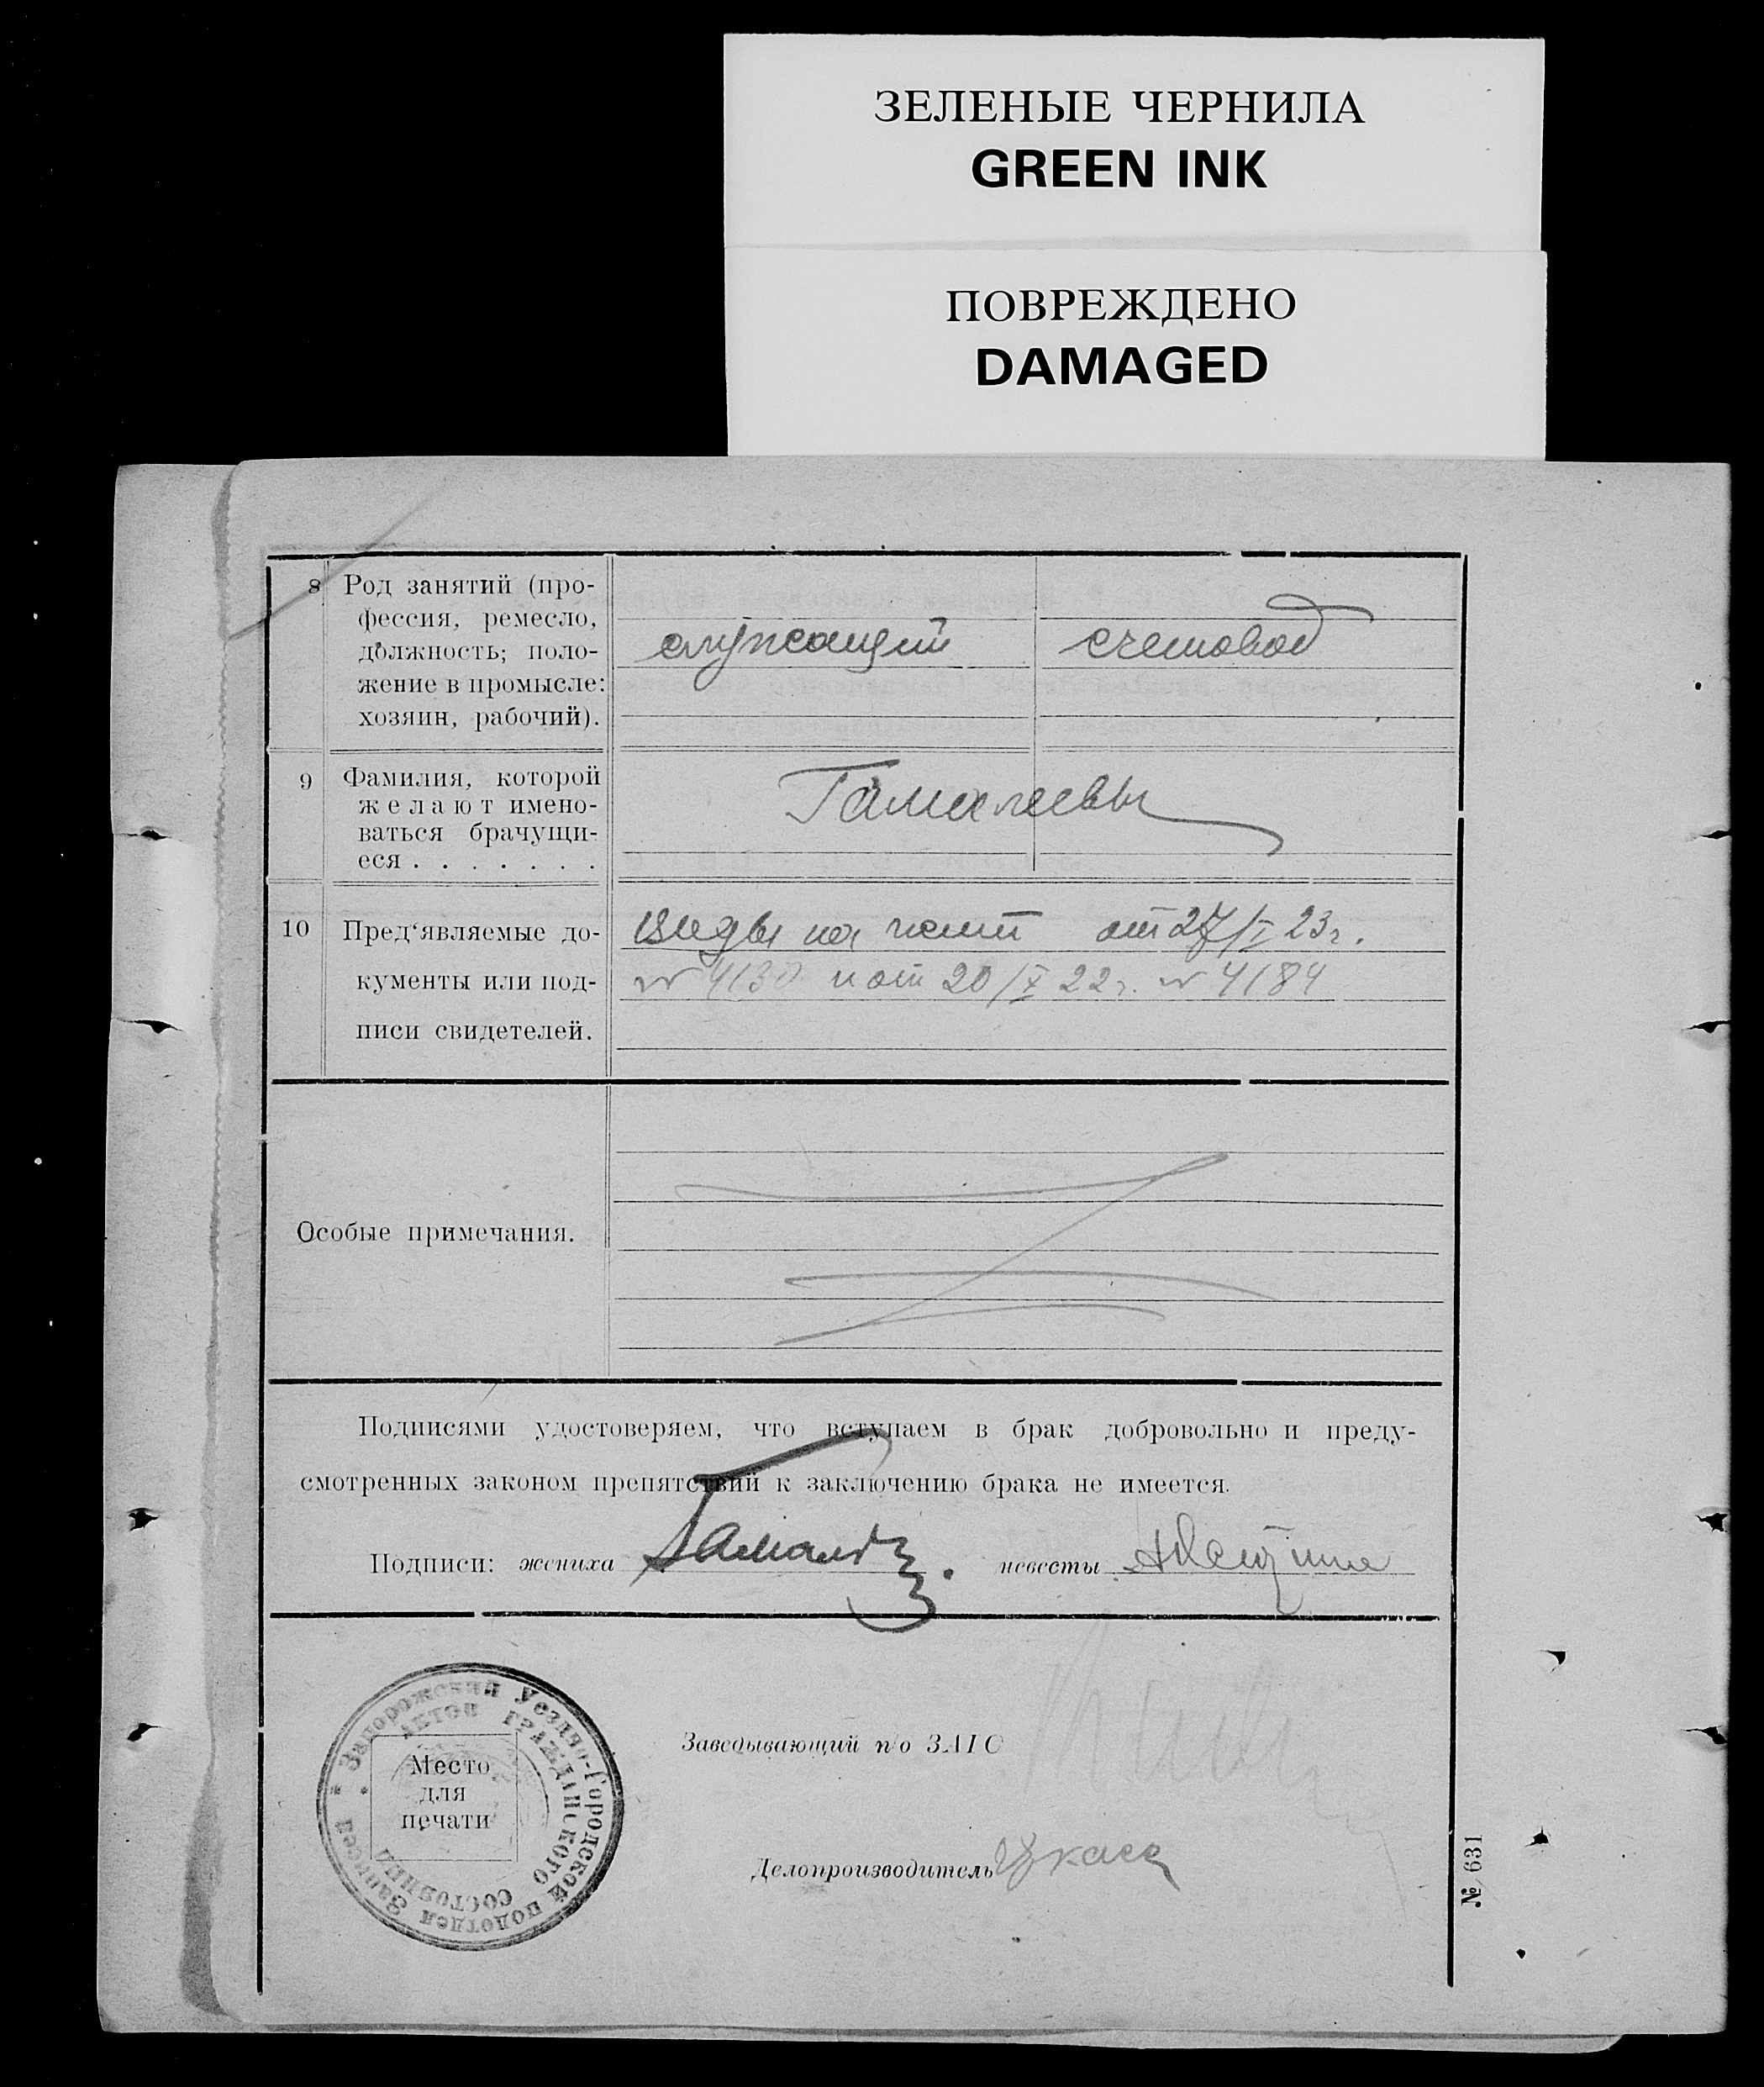 ЗЕЛЕНЫЕ ЧЕРНИЛА
GREEN INK
ПОВРЕЖДЕНО
DAMAGED
8 Род занятий (про-
фессия, ремесло,
должность; поло-
жение в промысле:
хозяин, рабочий).
служащий
счетовод
9 Фамилия, которой
желают имено-
ваться брачущи-
еся . . . . . . .
Гамалеевы
10 Пред‘являемые до-
кументы или под-
писи свидетелей.
виды на жит от 27/I 23г.
№ 4130 и от 20/X 22г. № 4184
Особые примечания.
Подписями удостоверяем, что вступаем в брак добровольно и преду-
смотренных законом препятствий к заключению брака не имеется.
Подписи: жениха невесты
Запорожский Уездно-Городской подотдел Записей
АКТОВ ГРАЖДАНСКОГО СОСТОЯНИЯ
Место
для
печати
Заведывающий п/о ЗАГС
Делопроизводитель
№ 631